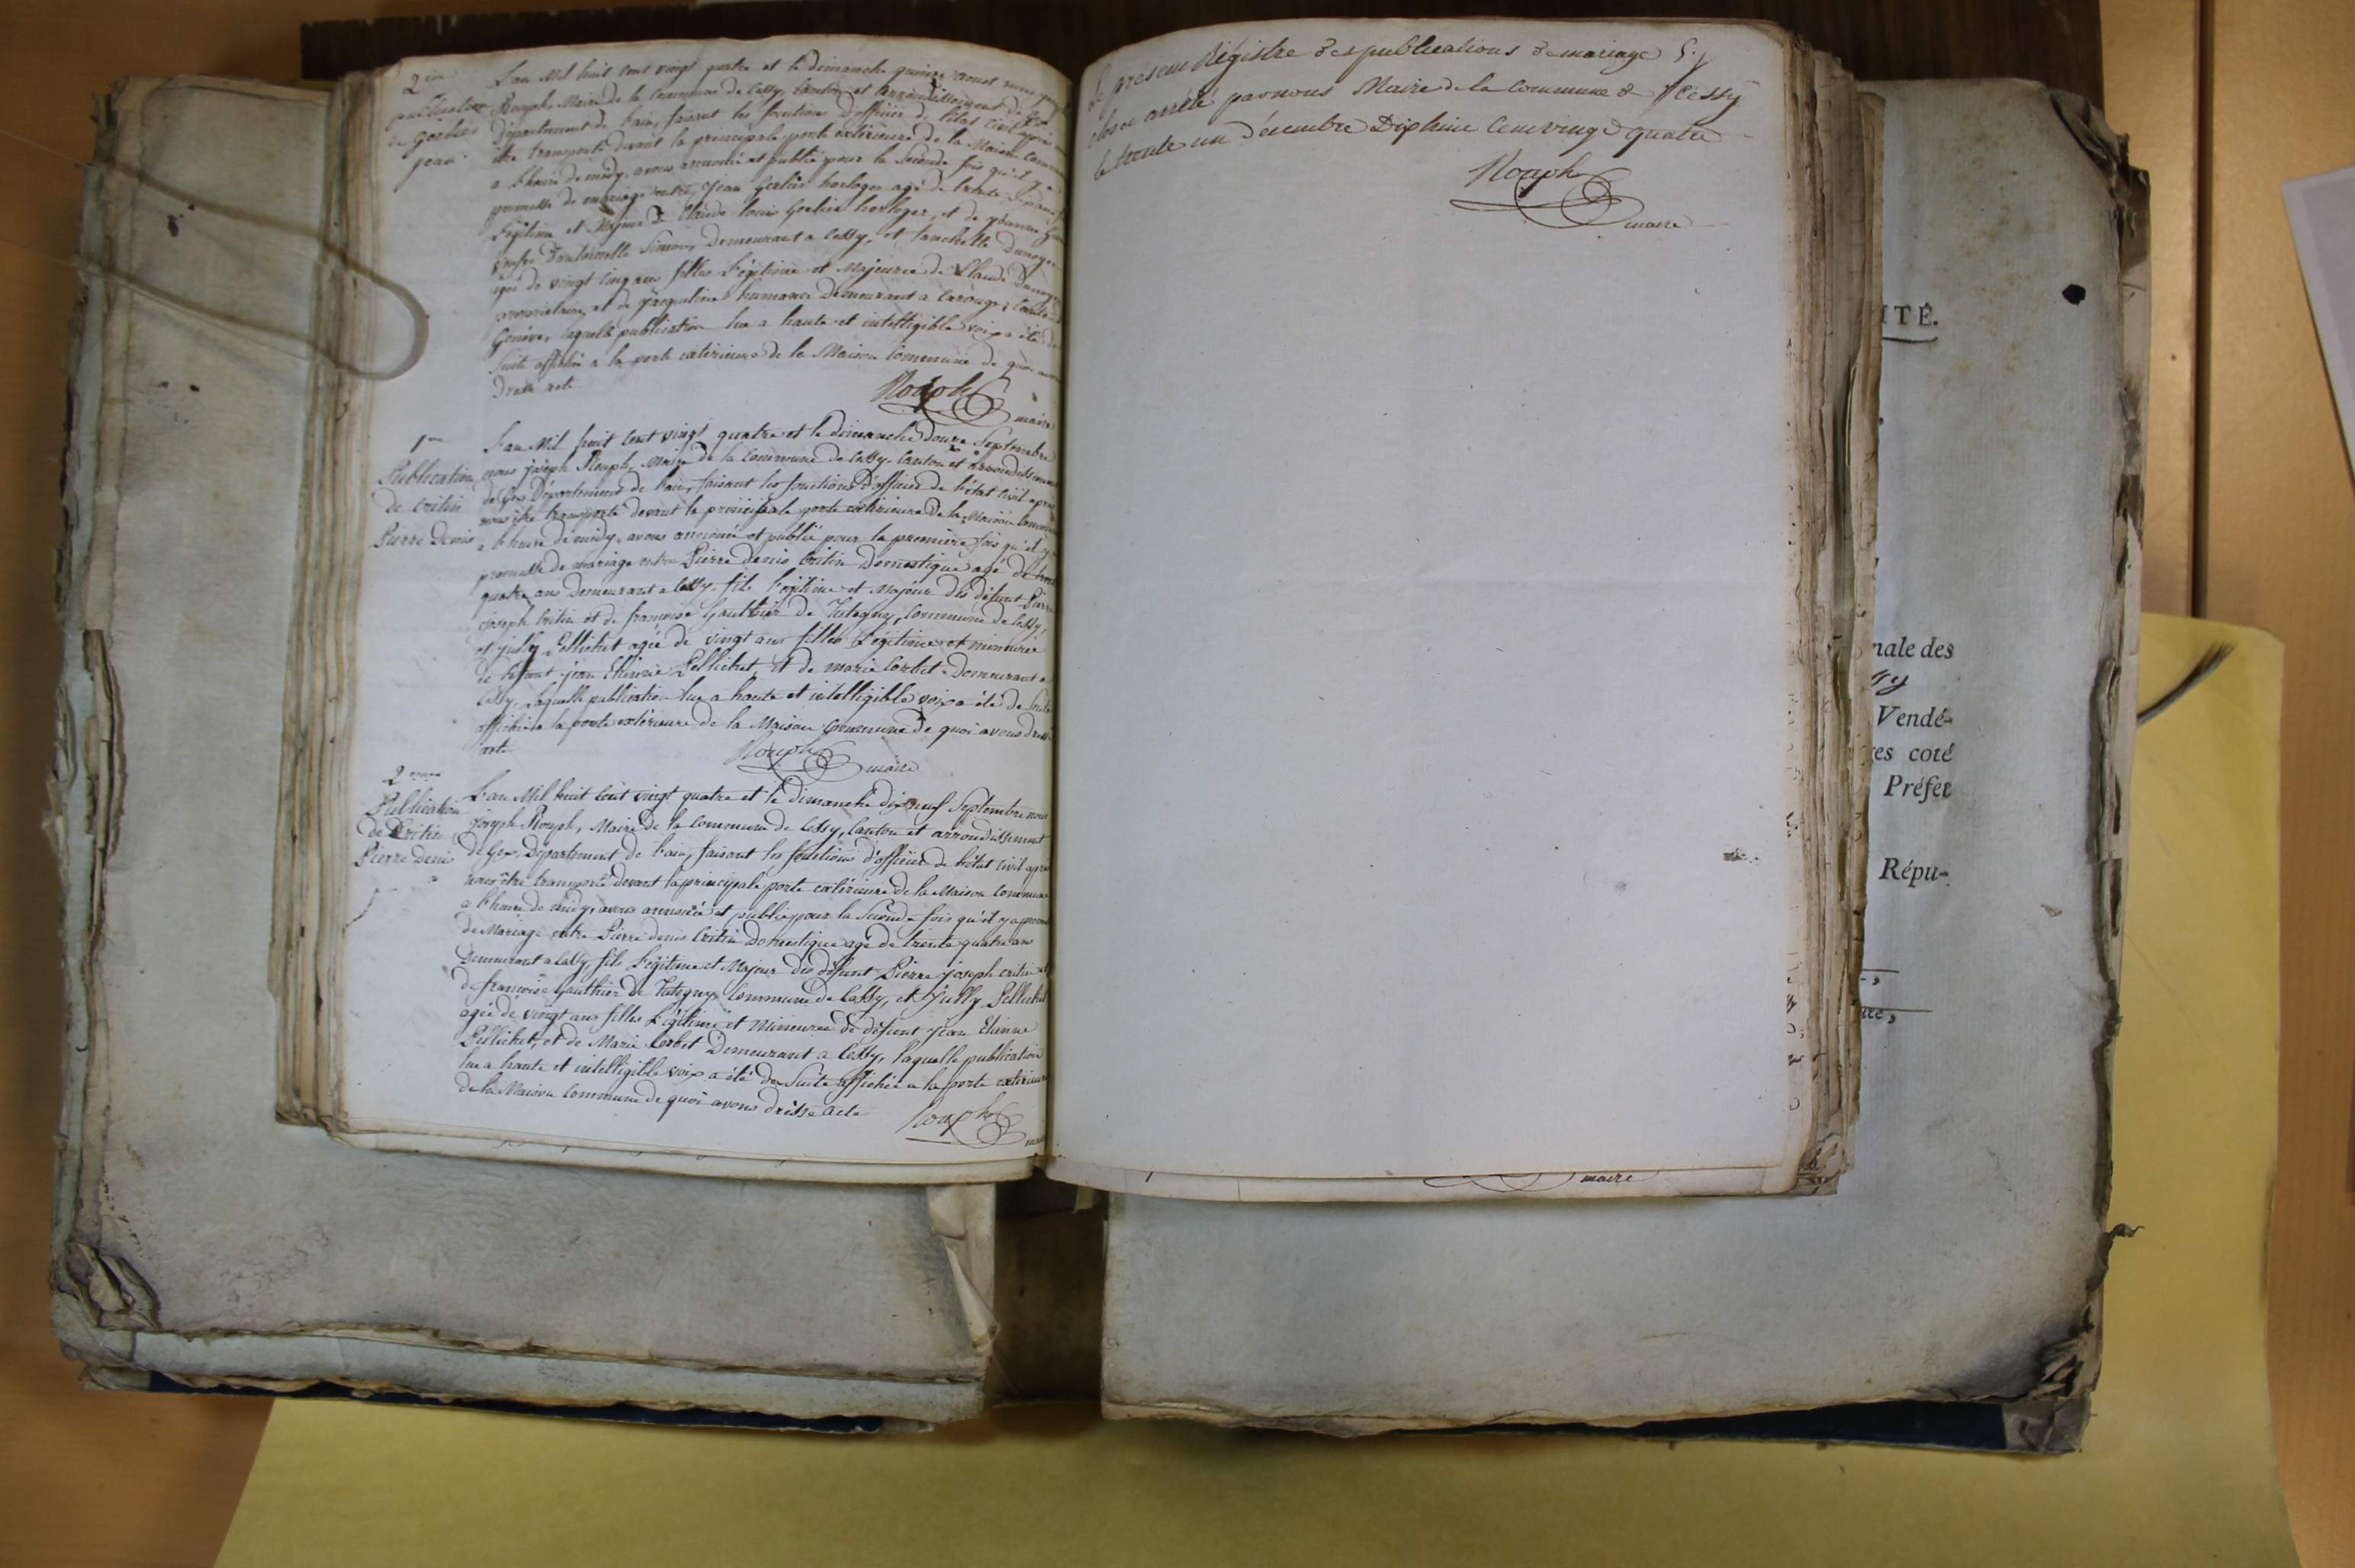 2eme
publication
de Gerlier
jean
L'an Mil huit cent vingt quatre et le dimanche quinze aoust nous
Rouph, Maire de la Commune de Cessy, Canton et arrondissement de Gex
département de l'ain, faisant les fonctions d'officier de l'état civil après
être transporté devant la principale porte extérieure de la Maison Commune
a l'heure de midy, avons annoncé et publié pour la Seconde fois qu'il y a
promesse de mariage entre jean horloger agé de trente
Légitime et Majeur de Claude Louis horloger, et de
d'antoinette Simon, Demeurant a Cessy, et Dunoyer
agée de vingt cinq ans filles Légitime et Majeure de Claude
et de jacqueline Demeurant a Carouge, Canton
Genève, laquelle publication lue a haute et intelligible voix a été de
Suite affichée a la porte extérieure de la Maison Commune de quoi avons
Dressé acte
Rouph maire
1ere
Publication
de Critin
Pierre Denis
L'an Mil huit Cent vingt quatre et le dimanche douze Septembre
nous joseph Rouph, Maire de la Commune de Cessy, Canton et arrondissement
de Gex Département de l'ain, faisant les fonctions d'officier de l'état civil après
nous être transporté devant la principale porte extérieure de la Maison Commune
a l'heure de midy, avons annoncé et publié pour la première fois qu'il y a
promesse de mariage entre Pierre denis Critin Domestique agé de trente
quatre ans demeurant a Cessy, fils Légitime et Majeur des défunt Pierre
joseph Critin et de françoise Gauthier de Tutegny, Commune de Cessy,
et jully Pellichet agée de vingt ans filles Légitime et mineure
de défunt jean Etienne Pellichet, et de marie Corbet Demeurant a
Cessy, Laquelle publication lue a haute et intelligible voix a été de Suite
affichée a la porte extérieure de la Maison Commune de quoi avons dressé
acte
Rouph maire
2eme
Publication
de Critin
Pierre Denis
L'an Mil huit Cent vingt quatre et le dimanche dix neuf Septembre nous
Joseph Rouph, Maire de la Commune de Cessy, Canton et arrondissement
de Gex, Département de l'ain, faisant les fonctions d'officier de l'état civil après
nous être transporté devant la principale porte extérieure de la Maison Commune
a l'heure de midy, avons annoncé et publié pour la Seconde fois qu'il y a promesse
de Mariage entre Pierre denis Critin Domestique agé de trente quatre ans
Demeurant a Cessy, fils Légitime et Majeur des défunt Pierre joseph critin et
de françoise Gauthier de Tutegny Commune de Cessy, et Jully Pellichet
agée de vingt ans filles Légitime et Mineure de défunt jean Etienne
Pellichet, et de Marie Corbet Demeurant a Cessy, laquelle publication
lue a haute et intelligible voix a été de Suite affichée a la porte extérieure
de la Maison Commune de quoi avons dressé acte
Rouph
Le présent Régistre des publications de mariage
clos et arrêté par nous Maire de la Commune de Cessy
le trente un décembre Dix huit Cent vingt quatre
Rouph
maire
maire
ITÉ.
nale des
Vendé-
es coté
Préfet
Répu-